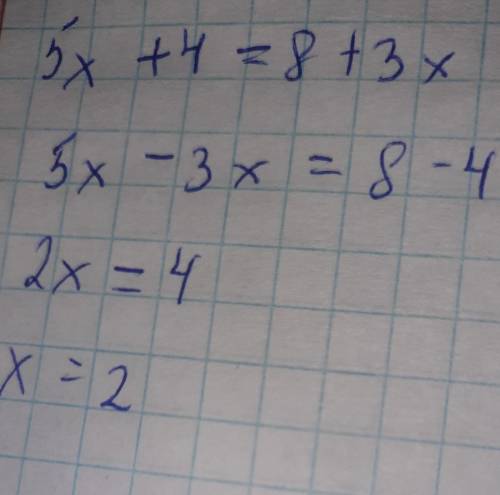 5x + 4 = 8 + 3x
5x - 3x = 8 - 4
2x = 4
x = 2